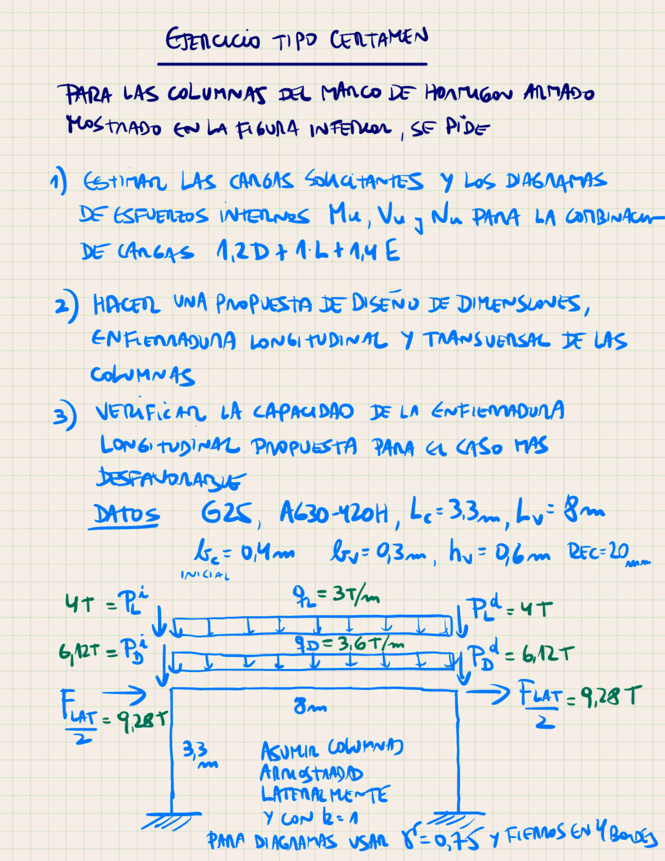 EJERCICIO TIPO CERTAMEN
PARA LAS COLUMNAS DEL MARCO DE HORMIGON ARMADO
MOSTRADO EN LA FIGURA INFERIOR, SE PIDE
1) ESTIMAR LAS CARGAS SOLICITANTES Y LOS DIAGRAMAS
DE ESFUERZOS INTERNOS Mu, Vu y Nu PARA LA COMBINACION
DE CARGAS 1,2D + 1·L + 1,4E
2) HACER UNA PROPUESTA DE DISEÑO DE DIMENSIONES,
ENFIERRADURA LONGITUDINAL Y TRANSVERSAL DE LAS
COLUMNAS
3) VERIFICAR LA CAPACIDAD DE LA ENFIERRADURA
LONGITUDINAL PROPUESTA PARA EL CASO MAS
DESFAVORABLE
DATOS G25, A630-420H, Lc = 3,3m, Lv = 8m
bc = 0,4m bv = 0,3m, hv = 0,6m REC=20mm
INICIAL
4T = P_L^i q_L = 3T/m P_L^d = 4T
6,12T = P_D^i q_D = 3,6T/m P_D^d = 6,12T
F_LAT/2 = 9,28T 8m F_LAT/2 = 9,28T
3,3m ASUMIR COLUMNAS
ARRIOSTRADAS
LATERALMENTE
Y CON k = 1
PARA DIAGRAMAS USAR γ = 0,75 Y FIERROS EN 4 BORDES